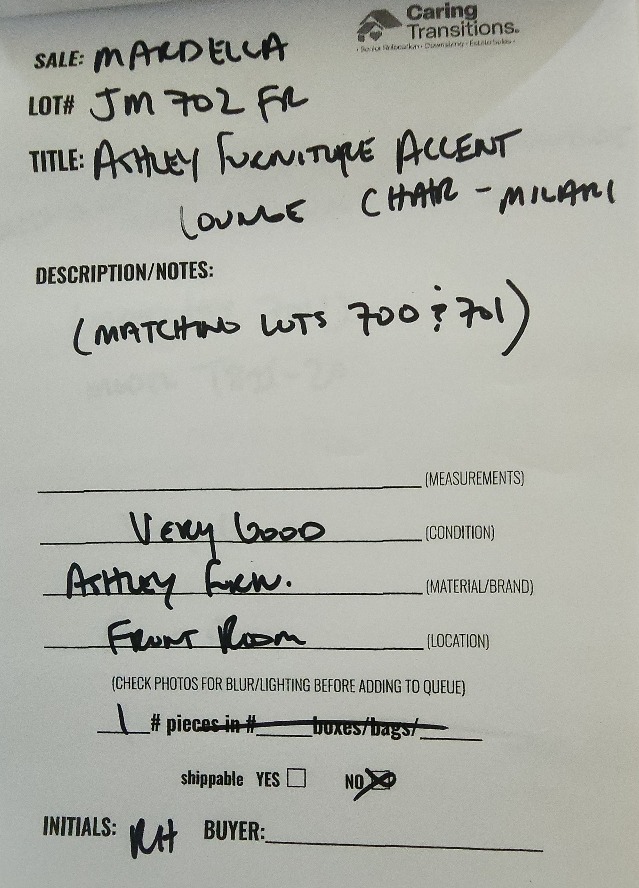 Caring
Transitions.
• Senior Relocation • Downsizing • Estate Sales •
SALE: MARDELLA
LOT# JM 702 FR
TITLE: ASHLEY FURNITURE ACCENT
LOUNGE CHAIR - MILARI
DESCRIPTION/NOTES:
(MATCHING LOTS 700 & 701)
(MEASUREMENTS)
VERY GOOD (CONDITION)
ASHLEY FURN. (MATERIAL/BRAND)
FRONT ROOM (LOCATION)
(CHECK PHOTOS FOR BLUR/LIGHTING BEFORE ADDING TO QUEUE)
1 # pieces in # boxes/bags/
shippable YES NO
INITIALS: RH BUYER: